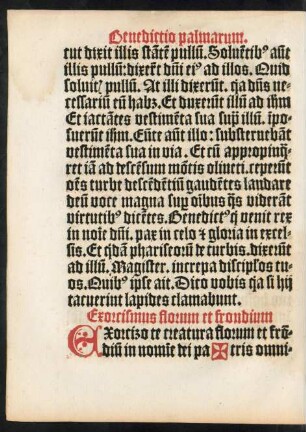 Benedictio palmarum.
rut dixit illis stātē pullū. Soluētibꝰ aūt
illis pullū: dixerūt dn̄i eiꝰ ad illos. Quid
soluitꝭ pullū. At illi dixerūt. qꝛ dn̄s ne-
cessariū eū habꝫ. Et duxerūt illū ad ihm̄
Et iactātes vestimēta sua sup̄ illū. īpo-
suerūt ihm̄. Eūte aūt illo: substernebāt
vestimēta sua in via. Et cū appropinq̄-
ret iā ad descēsum mōtis oliueti. ceperūt
oēs turbe descēdētiū gaudētes laudare
deū voce magna sup̄ oībus q̄s viderāt
virtutibꝰ dicētes. Benedictꝰ q̄ venit rex
in noīe dn̄i. pax in celo ⁊ gloria in excel-
sis. Et q̄dā phariseorū de turbis. dixerūt
ad illū. Magister. increpa discipl'os tu-
os. Quibꝰ ip̄e ait. Dico vobis qꝛ si hij
tacuerint lapides clamabunt.
Exorcismus florum et frondium
Exorcizo te creatura florum et frō-
diū in nomīe dei pa ✠ tris omni-